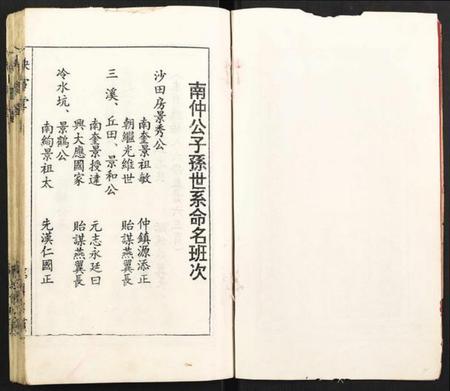 南仲公子孫世系命名班次
沙田房景秀公
南奎景祖敏　仲鎮源添正
朝繼光維世　貽謀燕翼長
三溪、丘田、景和公
南奎景授達　元志永廷曰
興大應國家　貽謀燕翼長
冷水坑、景鶴公
南絢景祖太　先漢仁國正